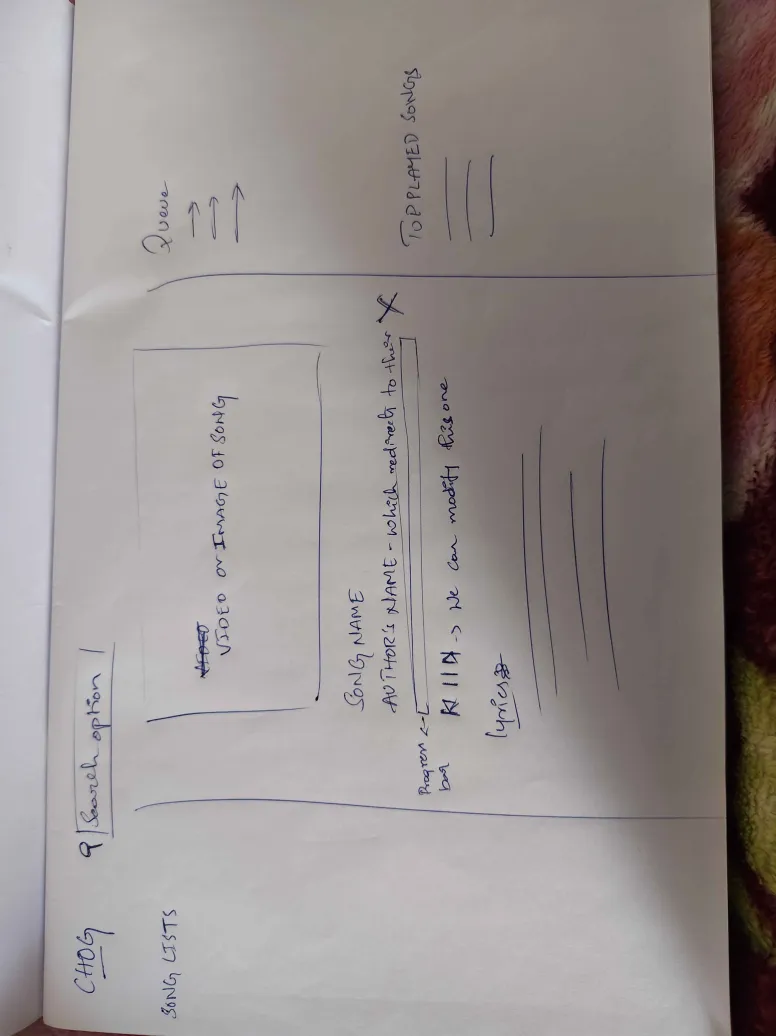 CHOG
Search option
SONG LISTS
VIDEO or IMAGE OF SONG
SONG NAME
AUTHOR'S NAME - which redirects to their X
Progress bar
→ We can modify this one
lyrics
Queue
TOP PLAYED SONGS